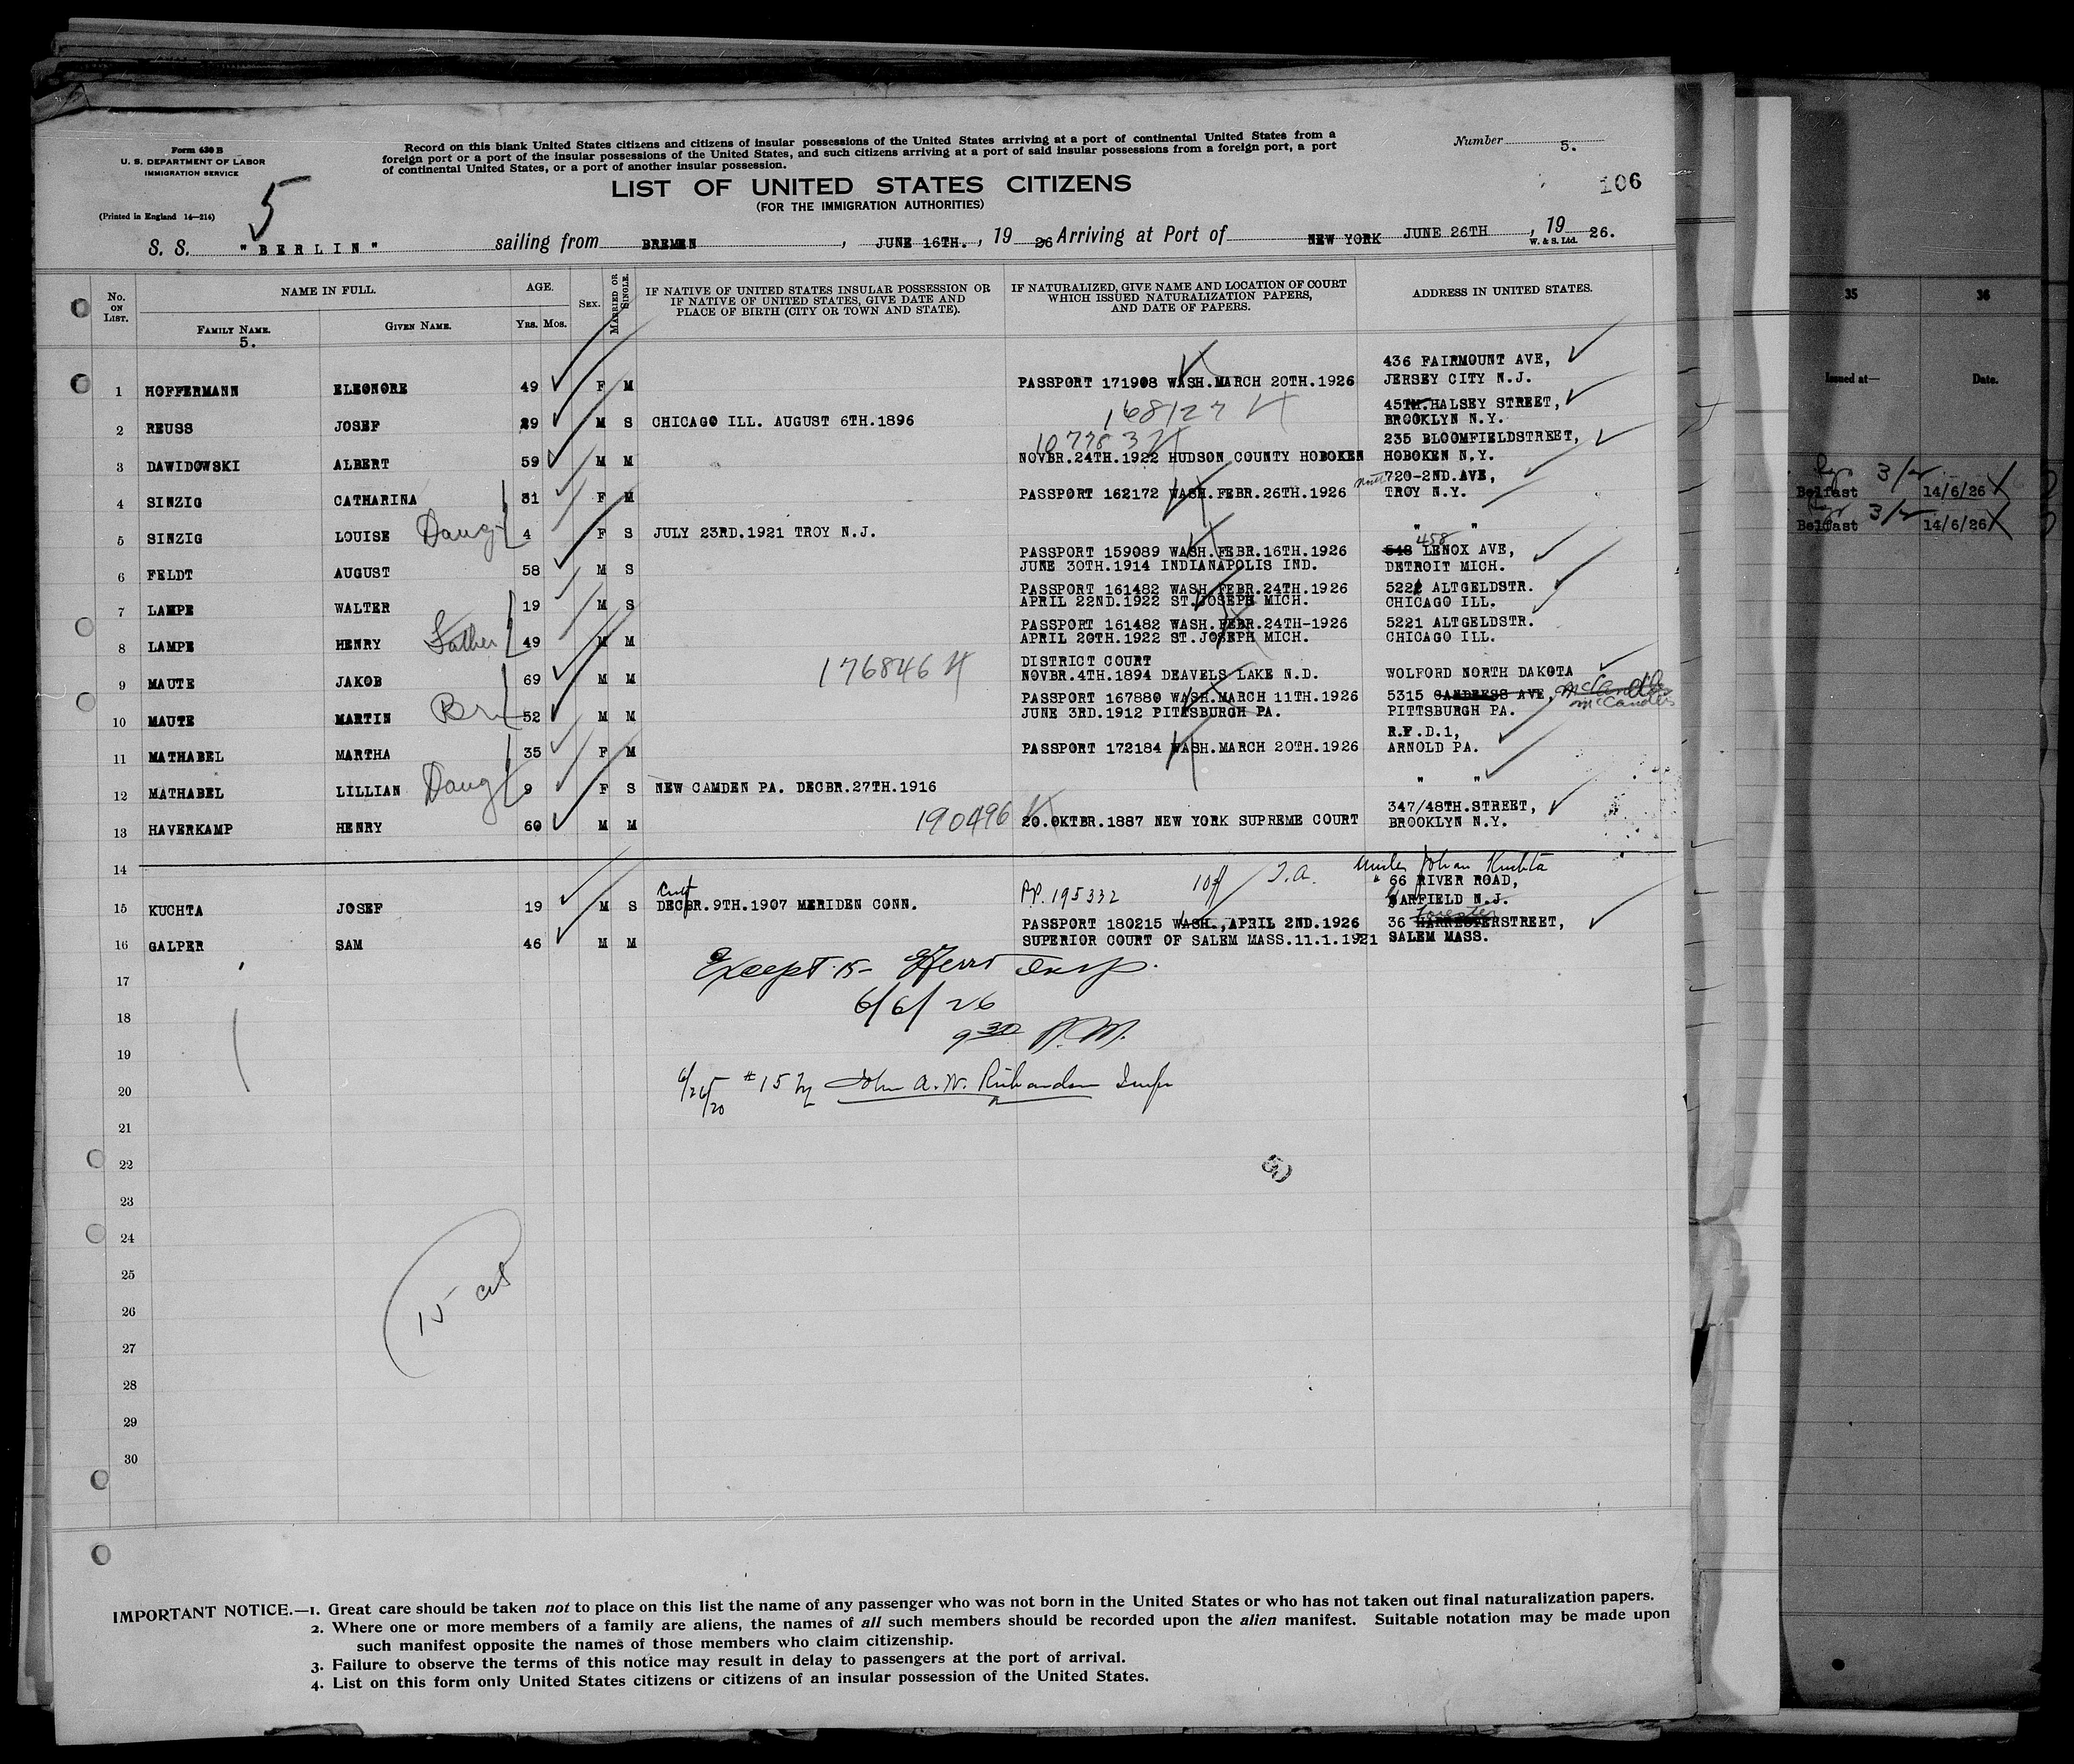 Form 630 B
U. S. DEPARTMENT OF LABOR
IMMIGRATION SERVICE
(Printed in England 14—214)
5
Record on this blank United States citizens and citizens of insular possessions of the United States arriving at a port of continental United States from a
foreign port or a port of the insular possessions of the United States, and such citizens arriving at a port of said insular possessions from a foreign port, a port
of continental United States, or a port of another insular possession.
Number 5.
LIST OF UNITED STATES CITIZENS
(FOR THE IMMIGRATION AUTHORITIES)
106
S. S. "BERLIN" sailing from BREMEN, JUNE 16TH., 19 26 Arriving at Port of NEW YORK JUNE 26TH, 19 26.
W. & S. Ltd.
No. ON LIST.
NAME IN FULL.
FAMILY NAME.
5.
GIVEN NAME.
AGE.
YRS. MOS.
SEX.
MARRIED OR SINGLE.
IF NATIVE OF UNITED STATES INSULAR POSSESSION OR
IF NATIVE OF UNITED STATES, GIVE DATE AND
PLACE OF BIRTH (CITY OR TOWN AND STATE).
IF NATURALIZED, GIVE NAME AND LOCATION OF COURT
WHICH ISSUED NATURALIZATION PAPERS,
AND DATE OF PAPERS.
ADDRESS IN UNITED STATES.
436 FAIRMOUNT AVE,
1 HOFFERMANN ELEONORE 49 F M PASSPORT 171908 WASH.MARCH 20TH.1926 JERSEY CITY N.J.
168127 45TH.HALSEY STREET,
2 REUSS JOSEF 29 M S CHICAGO ILL. AUGUST 6TH.1896 BROOKLYN N.Y.
107783 235 BLOOMFIELDSTREET,
3 DAWIDOWSKI ALBERT 59 M M NOVBR.24TH.1922 HUDSON COUNTY HOBOKEN HOBOKEN N.Y.
720-2ND.AVE,
4 SINZIG CATHARINA 31 F M PASSPORT 162172 WASH.FEBR.26TH.1926 TROY N.Y.
5 SINZIG LOUISE Daug 4 F S JULY 23RD.1921 TROY N.J. " "
458
PASSPORT 159089 WASH.FEBR.16TH.1926 548 LENOX AVE,
6 FELDT AUGUST 58 M S JUNE 30TH.1914 INDIANAPOLIS IND. DETROIT MICH.
PASSPORT 161482 WASH.FEBR.24TH.1926 5221 ALTGELDSTR.
7 LAMPE WALTER 19 M S APRIL 22ND.1922 ST.JOSEPH MICH. CHICAGO ILL.
PASSPORT 161482 WASH.FEBR.24TH-1926 5221 ALTGELDSTR.
8 LAMPE HENRY Father 49 M M APRIL 20TH.1922 ST.JOSEPH MICH. CHICAGO ILL.
DISTRICT COURT
9 MAUTE JAKOB 69 M M 176846 NOVBR.4TH.1894 DEAVELS LAKE N.D. WOLFORD NORTH DAKOTA
PASSPORT 167880 WASH.MARCH 11TH.1926 5315 CANDRESS AVE, McCandles
McCandles
10 MAUTE MARTIN Br 52 M M JUNE 3RD.1912 PITTSBURGH PA. PITTSBURGH PA.
R.F.D.1,
11 MATHABEL MARTHA 35 F M PASSPORT 172184 WASH.MARCH 20TH.1926 ARNOLD PA.
12 MATHABEL LILLIAN Daug 9 F S NEW CAMDEN PA. DECBR.27TH.1916 " "
347/48TH.STREET,
13 HAVERKAMP HENRY 60 M M 190496 20.OKTBR.1887 NEW YORK SUPREME COURT BROOKLYN N.Y.
14
Uncle Johan Kuchta
PP. 195332 66 RIVER ROAD,
15 KUCHTA JOSEF 19 M S DECBR.9TH.1907 MERIDEN CONN. GARFIELD N.J.
Forester
PASSPORT 180215 WASH.,APRIL 2ND.1926 36 HARRESTERSTREET,
16 GALPER SAM 46 M M SUPERIOR COURT OF SALEM MASS.11.1.1921 SALEM MASS.
17
Except 15 Insp.
18
6/6/26
19
9 30 A.M.
20
6/26/20 #15 by John A. W. Richardson Insp
21
22
50
23
24
25
26
15 cit
27
28
29
30
IMPORTANT NOTICE.—1. Great care should be taken not to place on this list the name of any passenger who was not born in the United States or who has not taken out final naturalization papers.
2. Where one or more members of a family are aliens, the names of all such members should be recorded upon the alien manifest. Suitable notation may be made upon
such manifest opposite the names of those members who claim citizenship.
3. Failure to observe the terms of this notice may result in delay to passengers at the port of arrival.
4. List on this form only United States citizens or citizens of an insular possession of the United States.
35 36
Issued at— Date.
3/2
Belfast 14/6/26
3/2
Belfast 14/6/26